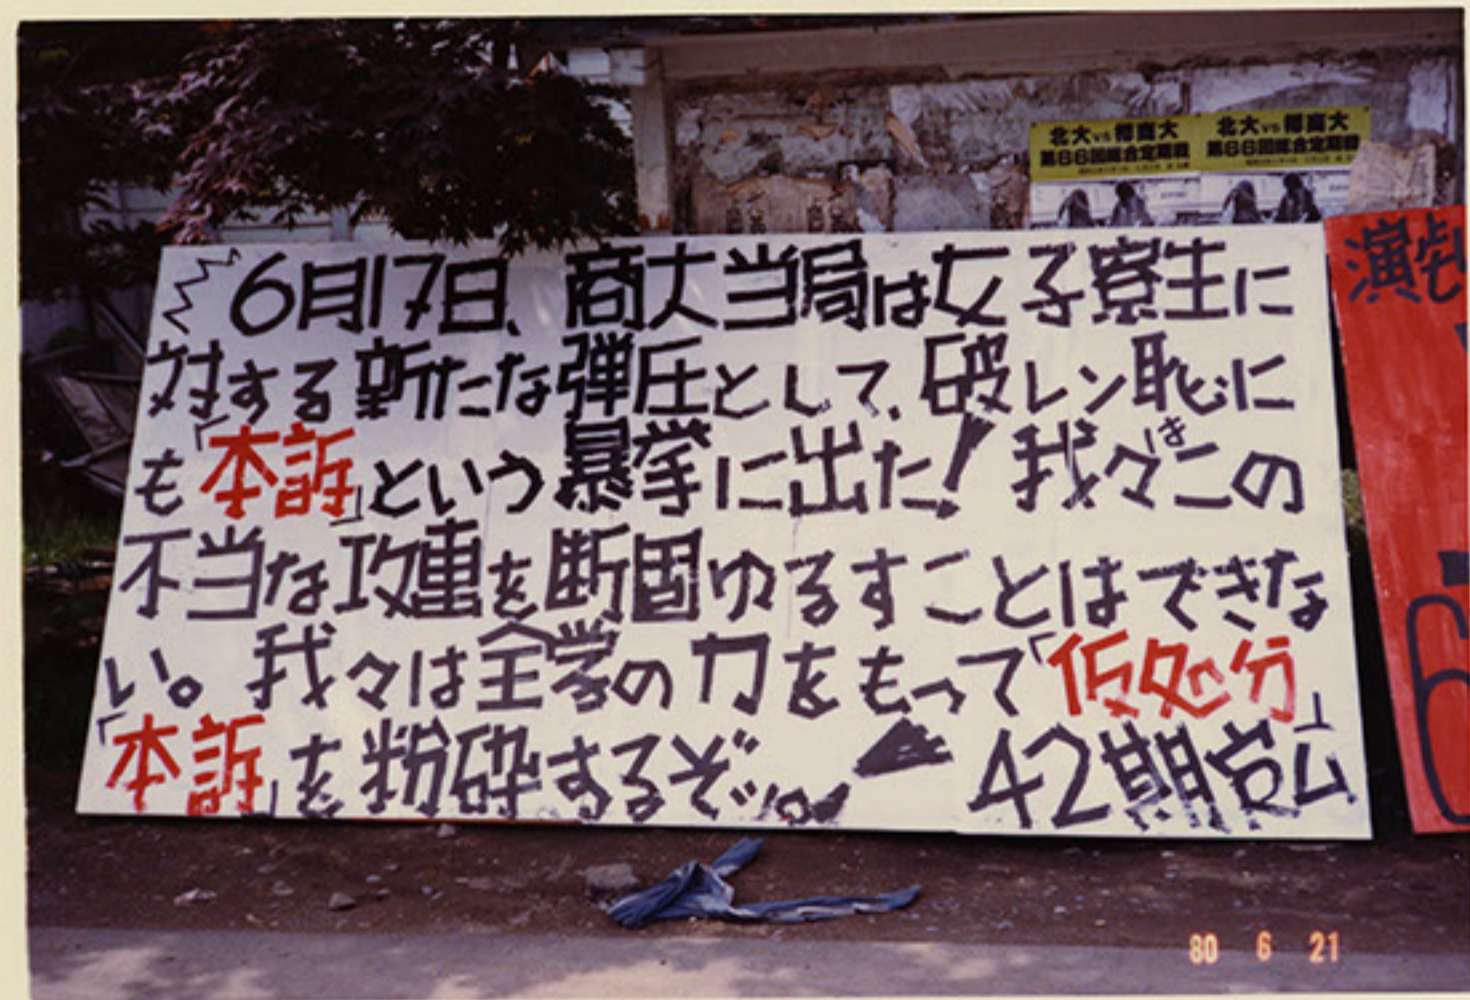 北大vs樽商大 北大vs樽商大
第66回総合定期戦 第66回総合定期戦
6月17日、商大当局は女子寮生に
対する新たな弾圧として、破レン恥に
も「本訴」という暴挙に出た!我々はこの
不当な攻撃を断固ゆるすことはできな
い。我々は全学の力をもって「仮処分」
「本訴」を粉砕するぞッ。
42期
演
6
80 6 21